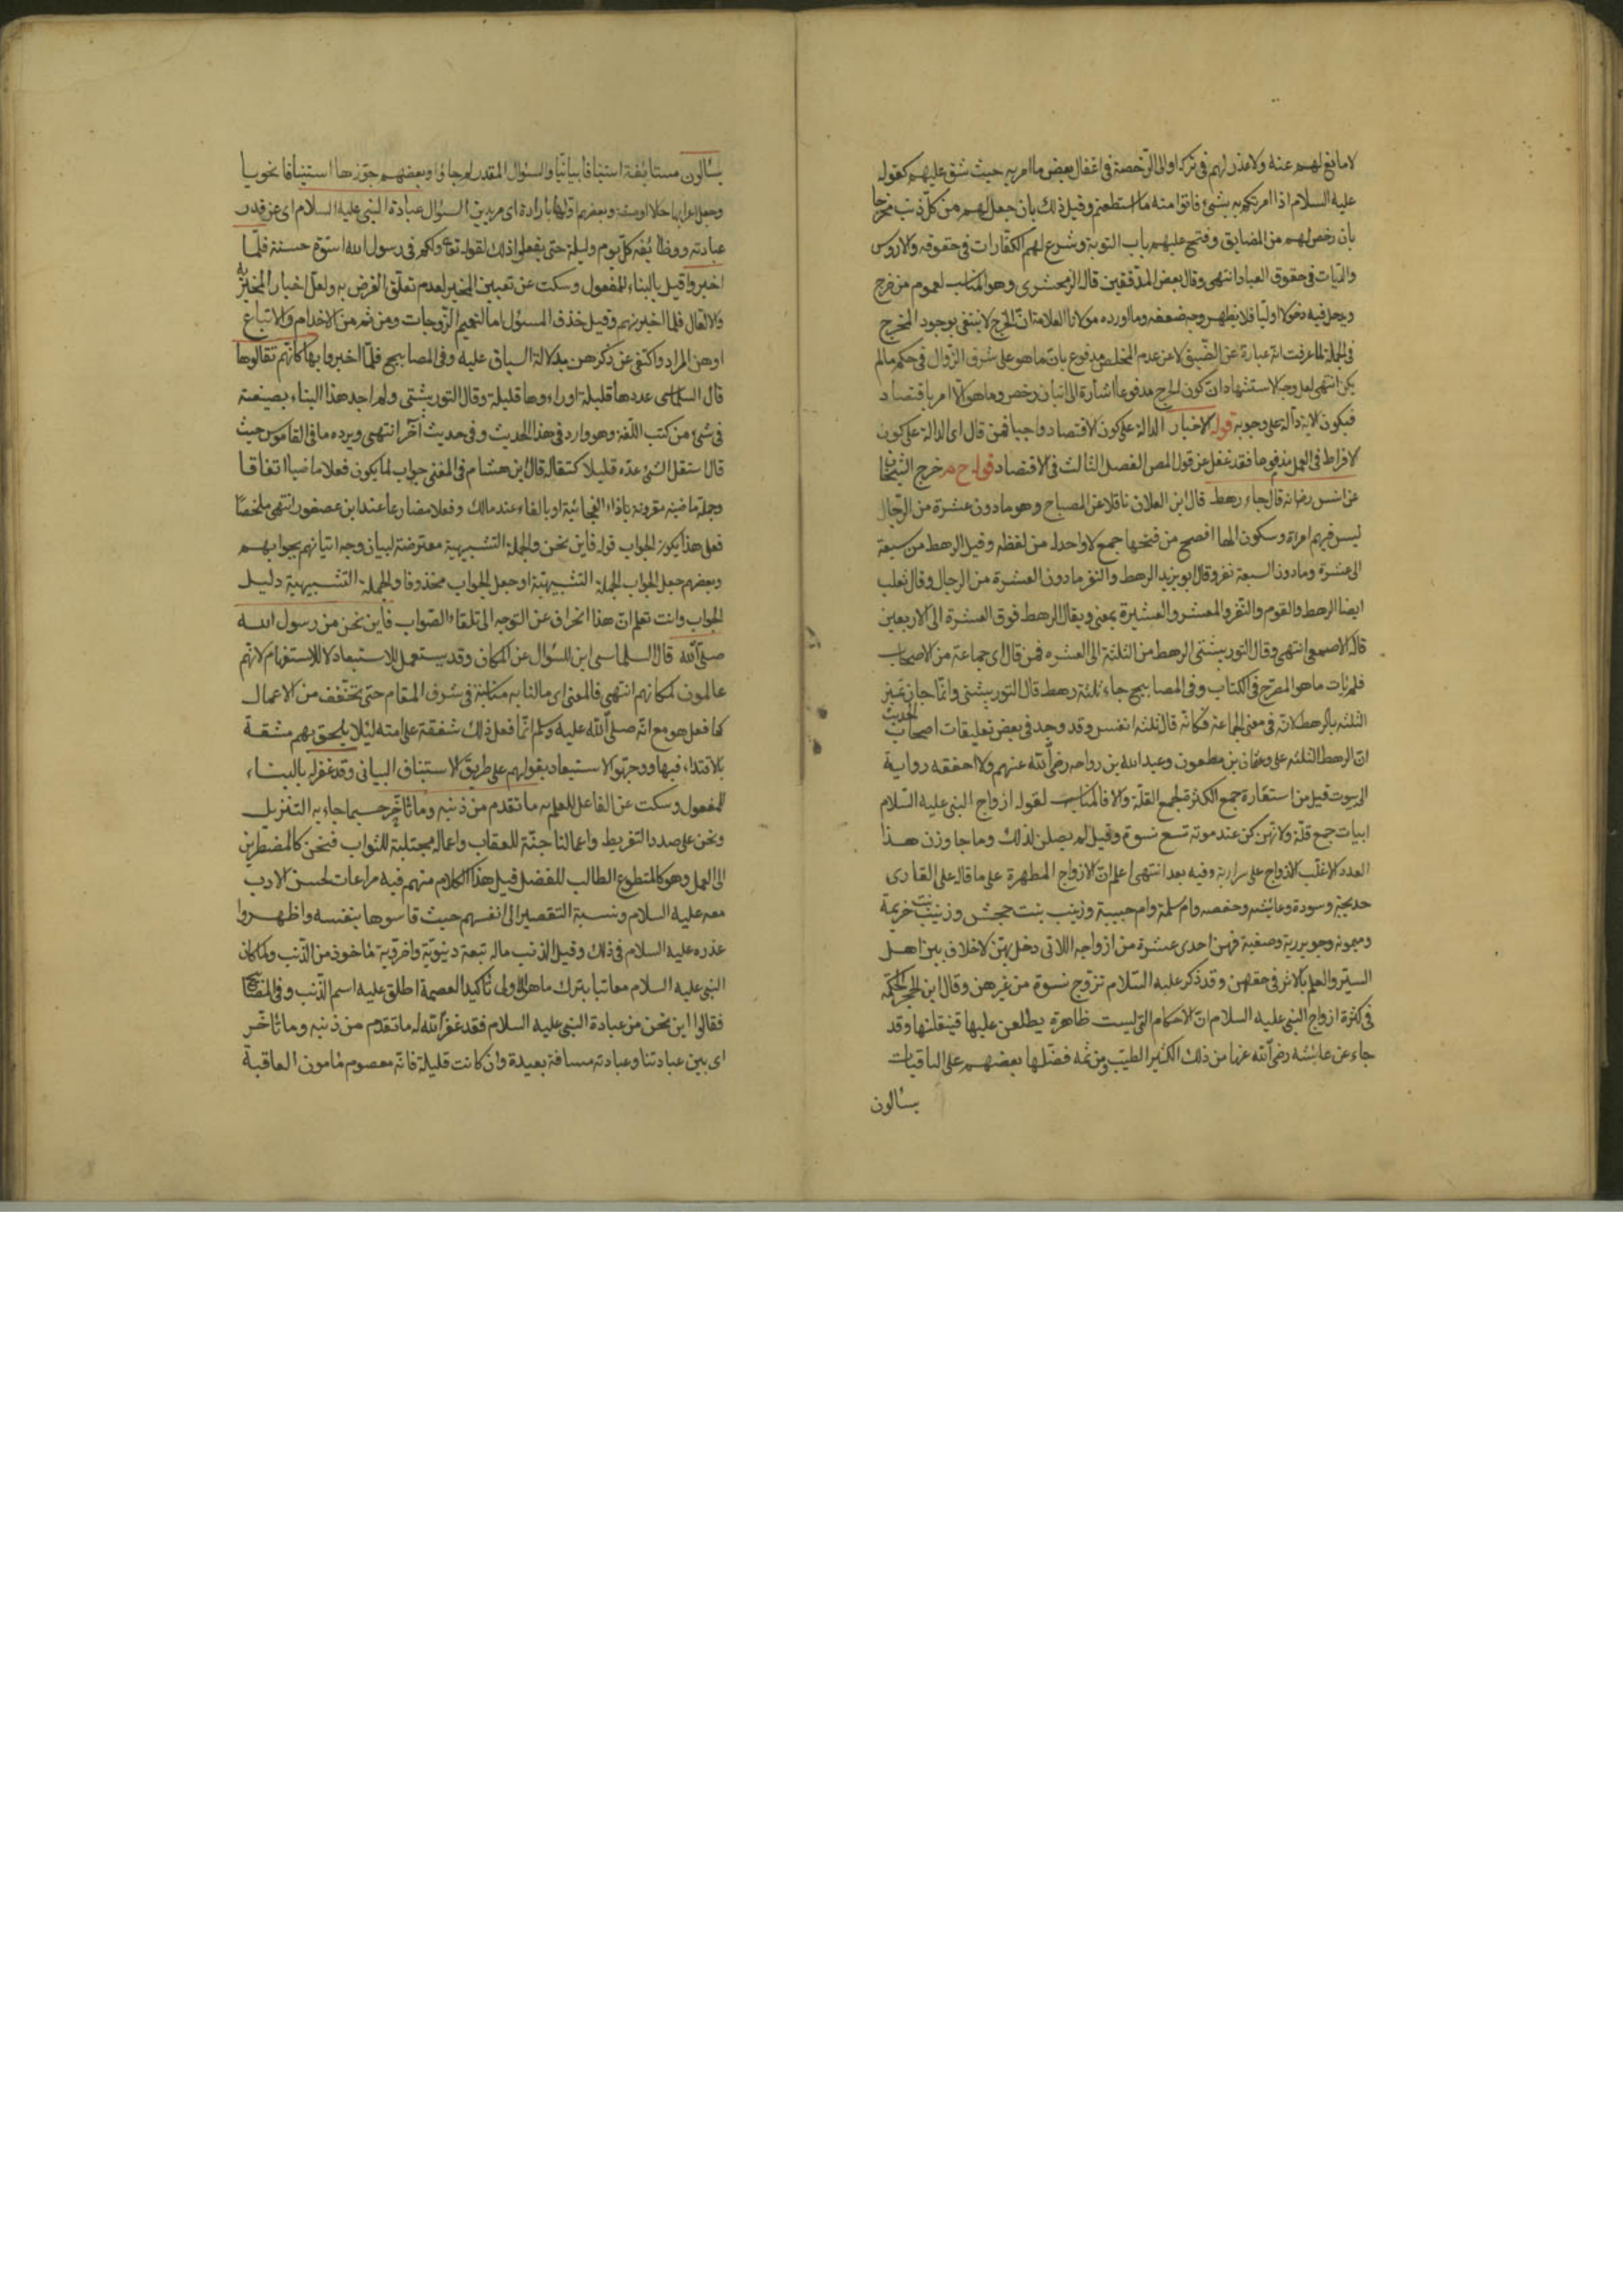 لا مانع لهم عنه ولا عذر لهم في تركه او الى الرخصة في اغفال بعض ما امر به حيث شق عليهم كقوله
عليه السلام اذا امرتكم به بشئ فاتوا منه ما استطعتم وقيل ذلك بان جعل لهم من كل ذنب مخرجا
بان رخص لهم من المضايق وفتح عليهم باب التوبة وشرع لهم الكفارات في حقوقه والاروش
والديات في حقوق العباد انتهى وقال بعض المدققين قال الزمخشرى وهو المناسب لعموم من حرج
ويدخل فيه دخولا اوليا فلا يظهر وجه ضعفه وما اورده مولانا العلامة ان الحرج لا ينتفى بوجود المخرج
في الجملة لما عرفت انه عبارة عن الضيق لا عن عدم المخلص مدفوع بان ما هو على شرف الزوال في حكم ما لم
يكن انتهى لعل وجه الاستشهاد ان كون الحرج مدفوعا اشارة الى اتيان رخص وما هو الا امر باقتصاد
فيكون الآية دالة على وجوبه قوله الاخبار الدالة على كون الاقتصاد واجبا فمن قال اى الدالة على كون
الافراط في العمل مذموما فقد غفل عن قول المص الفصل الثالث في الاقتصاد قوله خ م خرج الشيخان
عن انس رض انه قال جاء رهط قال ابن العلان ناقلا عن المصباح وهو ما دون عشرة من الرجال
ليس فيهم امراة وسكون الهاء افصح من فتحها جمع لا واحد له من لفظه وقيل الرهط من سبعة
الى عشرة وما دون السبعة نفر وقال ابو يزيد الرهط والنفر ما دون العشرة من الرجال وقال ثعلب
ايضا الرهط والقوم والنفر والمعشر والعشيرة بمعنى ويقال الرهط فوق العشرة الى الاربعين
قاله الاصمعى انتهى وقال التوربشتى الرهط من الثلثة الى العشره فمن قال اى جماعة من الاصحاب
فلم يات ما هو المصرح في الكتاب وفي المصابيح جاء ثلثة رهط قال التوربشتى وانما جاز تميز
الثلثه بالرهط لانه في معنى الجماعة فكانه قال ثلثه انفس وقد وجد في بعض تعليقات اصحاب الحديث
ان الرهط الثلثه على وعثمان بن مظعون وعبد الله بن رواحه رضى الله عنهم ولا احققه رواية
الى بيوت قيل من استعارة جمع الكثرة لجمع القلة والا فالمناسب لقوله ازواج النبى عليه السلام
ابيات جمع قلة ولانهن كن عند موته تسع نسوة وقيل لم يصلن لذلك وما جاوزن هذا
العدد الا غلب الازواج على سراريه وفيه بعد انتهى اعلم ان الازواج المطهرة على ما قاله على القارى
خديجة وسودة وعايشه وحفصه وام سلمة وام حبيبة وزينب بنت جحش وزينب بنت خزيمة
وميمونه وجويرية وصفية فهن احدى عشرة من ازواجه اللاتى دخل بهن لا خلاف بين اهل
السير والعلم بالاثر في حقهن وقد ذكر عليه السلام تزوج نسوة من غيرهن وقال ابن الحجر الحكمة
في كثرة ازواج النبى عليه السلام ان الاحكام التى ليست ظاهرة يطلعن عليها فينقلنها وقد
جاء عن عائشه رضى الله عنها من ذلك الكثير الطيب ومن ثمه فضلها بعضهم على الباقيات
يسألون
يسألون مستأنفة استينافا بيانيا والسؤال المقدر لم جاؤا وبعضهم جوزها استينافا نحويا
وجعل اعرابها حالا او صفة وبعضهم اولها بارادة اى مريدين السؤال عبادة النبى عليه السلام اى عن قدر
عبادته ووظائفه كل يوم وليلة حتى يفعلوا ذلك لقوله تع ولكم في رسول الله اسوة حسنة فلما
اخبروا قيل بالبناء للمفعول وسكت عن تعيين المخبر لعدم تعلق الغرض به ولعل اخبار المخبر به
والا لقال فلما اخبرنهم وقيل حذف المسئول اما لتعميم الزوجات ومن ثم من الاخدام والاتباع
او هن المراد واكتفى عن ذكرهن بدلالة السياق عليه وفى المصابيح فلما اخبروا بها كانهم تقالوها
قال السلماسى عددها قليلة او راءوها قليلة وقال التوربشتى ولم اجد هذا البناء بصيغته
في شئ من كتب اللغة وهو وارد في هذا الحديث وفي حديث آخر انتهى ويرده ما في القاموس حيث
قال استقل الشئ عده قليلا كتقاله قال ابن هشام في المغنى جواب لما يكون فعلا ماضيا اتفاقا
وجملة ماضيه مقرونه باذا الفجائية او بالفاء عند مالك وفعلا مضارعا عند ابن عصفور انتهى ملخصا
فعلى هذا يكون الجواب قوله فاين نحن والجملة التشبيهية معترضة لبيان وجه اتيانهم بجوابهم
وبعضهم جعل الجواب الجملة التشبيهية او جعل الجواب محذوفا والجملة التشبيهية دليل
الجواب وانت تعلم ان هذا انحراف عن التوجه الى تلقاء الصواب فأين نحن من رسول الله
صلى الله قال السلماسى اين للسؤال عن المكان وقد يستعمل للاستبعاد لا للاستفهام لانهم
عالمون لمكانهم انتهى فالمعنى اى ما لنا به مناسبة في شرف المقام حتى نخفف من الاعمال
كما فعل هو مع انه صلى الله عليه وسلم انما فعل ذلك شفقة على امته لئلا يلحق بهم مشقة
بالاقتداء فيها ووجهوا الاستبعاد بقولهم على طريق الاستيناف البيانى وقد غفر له بالبناء
للمفعول وسكت عن الفاعل للعلم به ما تقدم من ذنبه وما تأخر حسبما جاء به التنزيل
ونحن على صدد التفريط واعمالنا جنة للعقاب واعماله مجتلبة للثواب فنحن كالمضطرين
الى العمل وهو كالمتطوع الطالب للفضل قيل هذا الكلام منهم فيه مراعات لحسن الادب
معه عليه السلام ونسبة التقصير الى انفسهم حيث قاسوها بنفسه واظهروا
عذره عليه السلام في ذلك وقيل الذنب ما له تبعة دينوية واخروية مأخوذ من الذنب ولما كان
النبى عليه السلام معاتبا بترك ما هو الاولى تأكيدا لعصمة اطلق عليه اسم الذنب وفي المصابيح
فقالوا اين نحن من عبادة النبى عليه السلام فقد غفر الله له ما تقدم من ذنبه وما تأخر
اى بين عبادتنا وعبادته مسافة بعيدة وان كانت قليلة فانه معصوم مأمون العاقبة